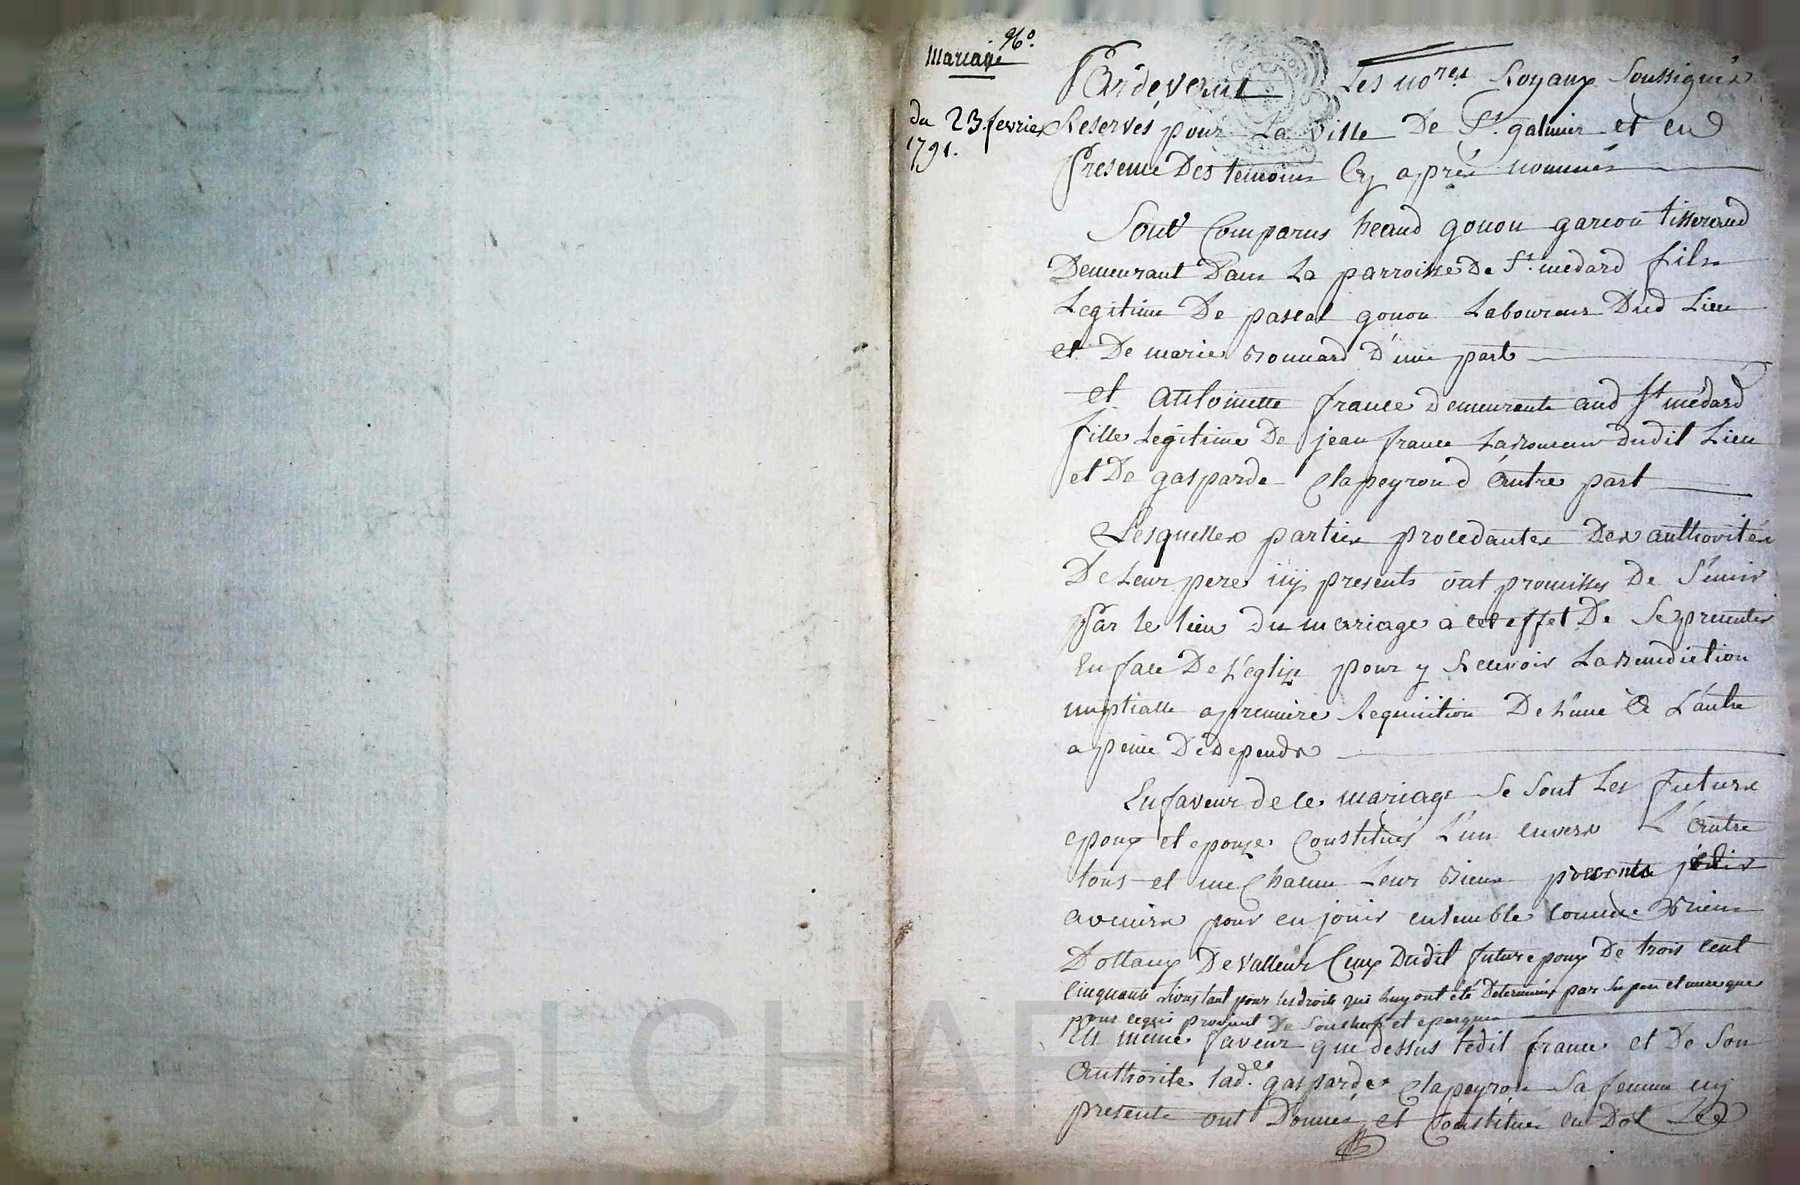 96°.
Mariage
du 23. fevrier
1791.
Pardevant Les no.res Royaux Soussignés
Reservés pour La ville De St. galmier et en
Presence Des temoins Cy aprés nommés
Sont Comparus heand gonon garcon tisserand
Demeurant Dans La parroisse De St. medard fils
Legitime De pascal gonon Laboureur Dud Lieu
et De marie bonnard D'une part
et antoinette france Demeurante aud St médard
fille Legitime De jean france Laboureur dudit Lieu
et De gasparde Clapeyron d'autre part
Lesquelles parties procedantes Des authorités
De Leur pere icy presents ont promisses De S'unir
Par le lien du mariage a cet effet De Se presenter
En face De L'eglise pour y Recevoir La benediction
nuptialle a premiere Requisition De L'une a L'autre
a peine De depends
En faveur de ce mariage Se Sont Les futurs
epoux et epouse Constitués L'un envers L'autre
tous et un Chacun Leur biens presents
avenirs pour en jouir ensemble Comme biens
Dottaux De valleur Ceux Dudit futur epoux De trois Cent
Cinquante Livres tant pour les droits qui Luy ont été Determinés par Son pere et mere que
pour ce qui provient De Son et epargnes
En meme faveur que dessus ledit france et De Son
Authorité lad.e gasparde Clapeyron Sa femme icy
presente ont Donné et Constitué en Dot